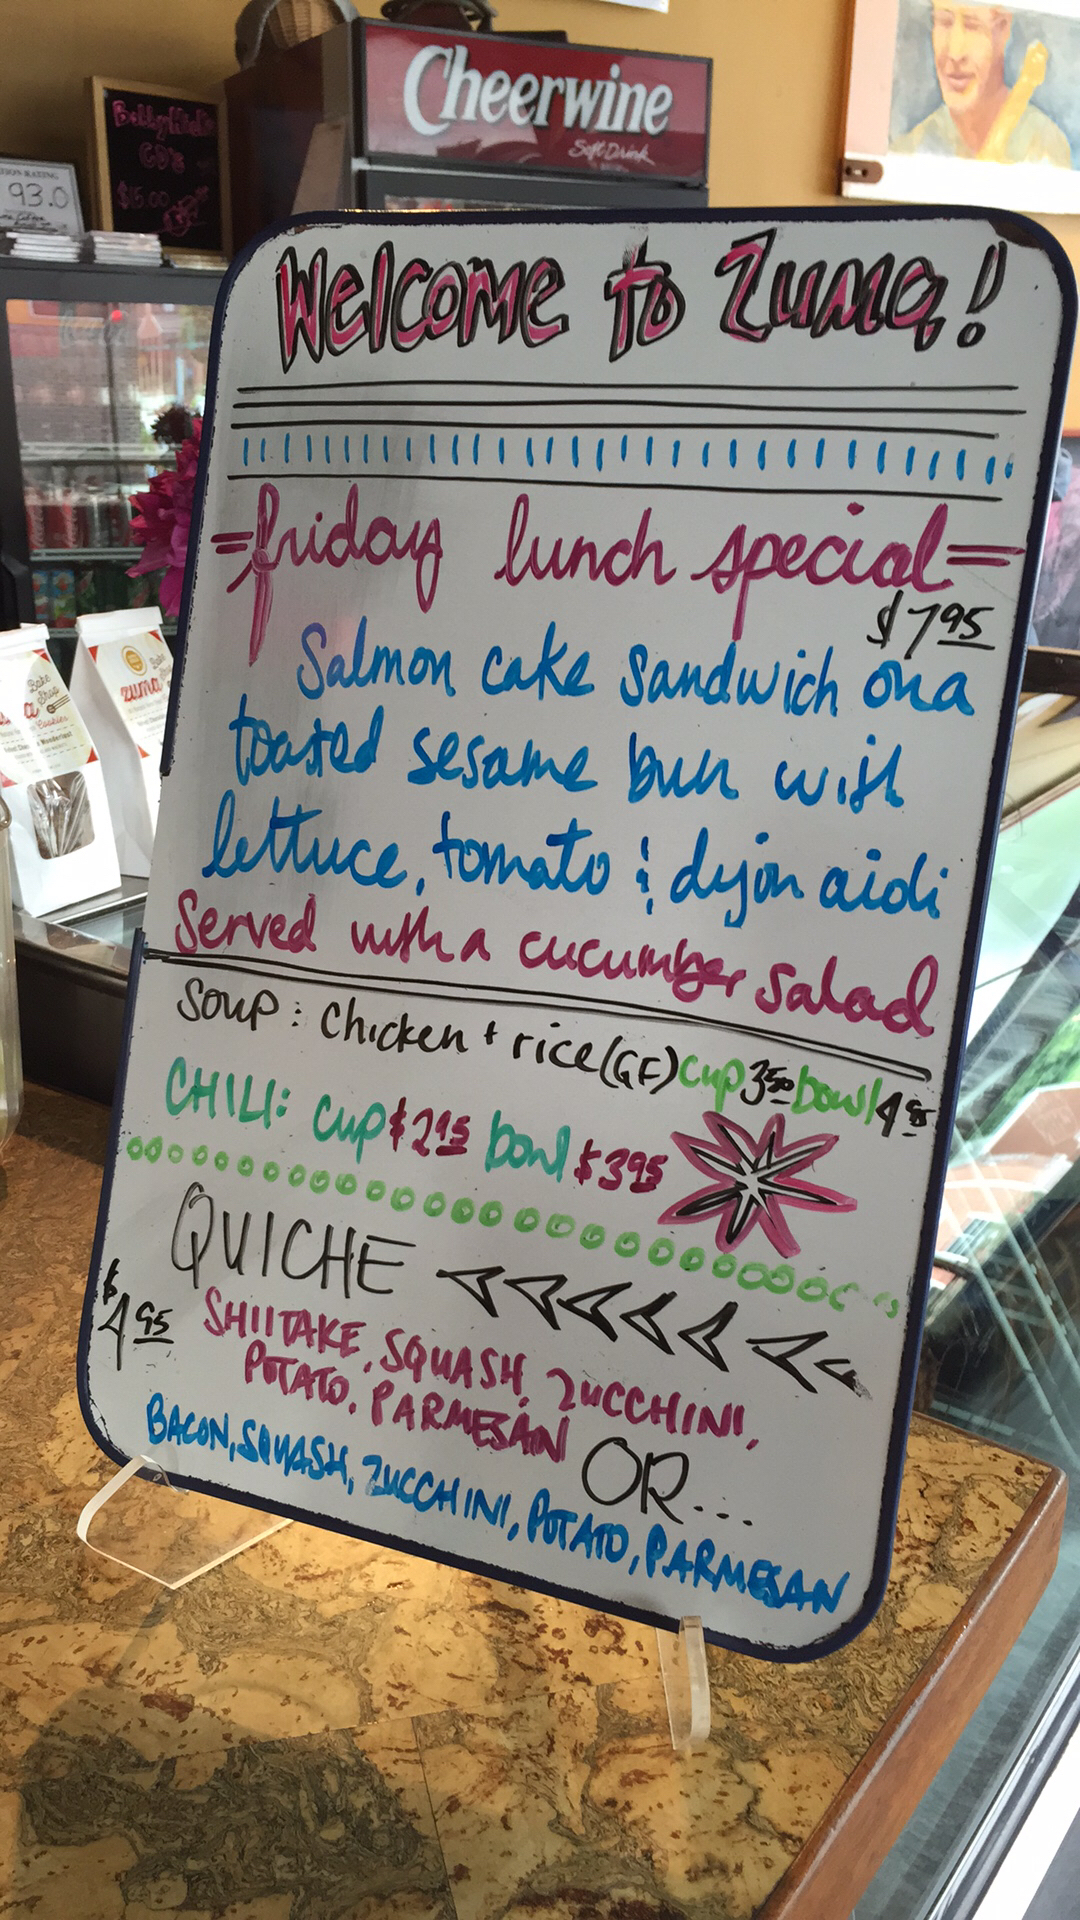 Cheerwine
Soft Drink
CD's
$15.00
93.0
Welcome to Zuma!
=friday lunch special=
$7.95
Salmon cake sandwich on a
toasted sesame bun with
lettuce, tomato & dijon aioli
Served with a cucumber salad
Soup: Chicken + rice (GF) cup 3.50 bowl 4.95
CHILI: cup $2.95 bowl $3.95
QUICHE
$4.95
SHIITAKE, SQUASH, ZUCCHINI,
POTATO, PARMESAN
OR...
BACON, SQUASH, ZUCCHINI, POTATO, PARMESAN